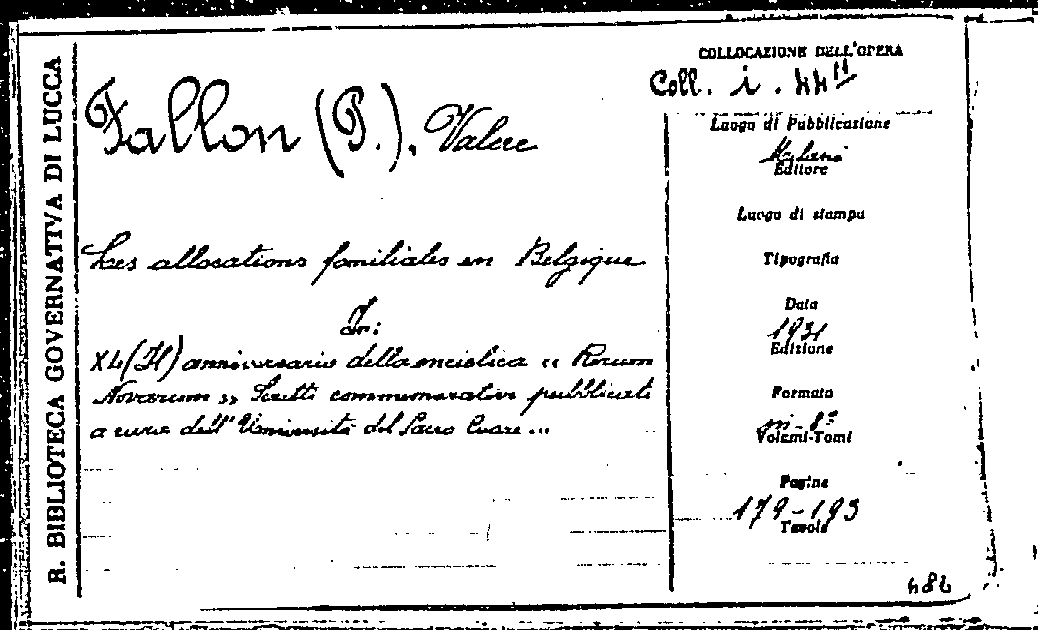 R. BIBLIOTECA GOVERNATIVA DI LUCCA
Fallon (P.). Valere
Les allocations familiales en Belgique
In:
XL (Il) anniversario della enciclica « Rerum
Novarum » Scritti commemorativi pubblicati
a cura dell'Università del Sacro Cuore ...
COLLOCAZIONE DELL'OPERA
Coll. i. 44
Luogo di Pubblicazione
Milano
Editore
Luogo di stampa
Tipografia
Data
1931
Edizione
Formato
in-8°
Volumi-Tomi
Pagine
179-193
Tavole
482